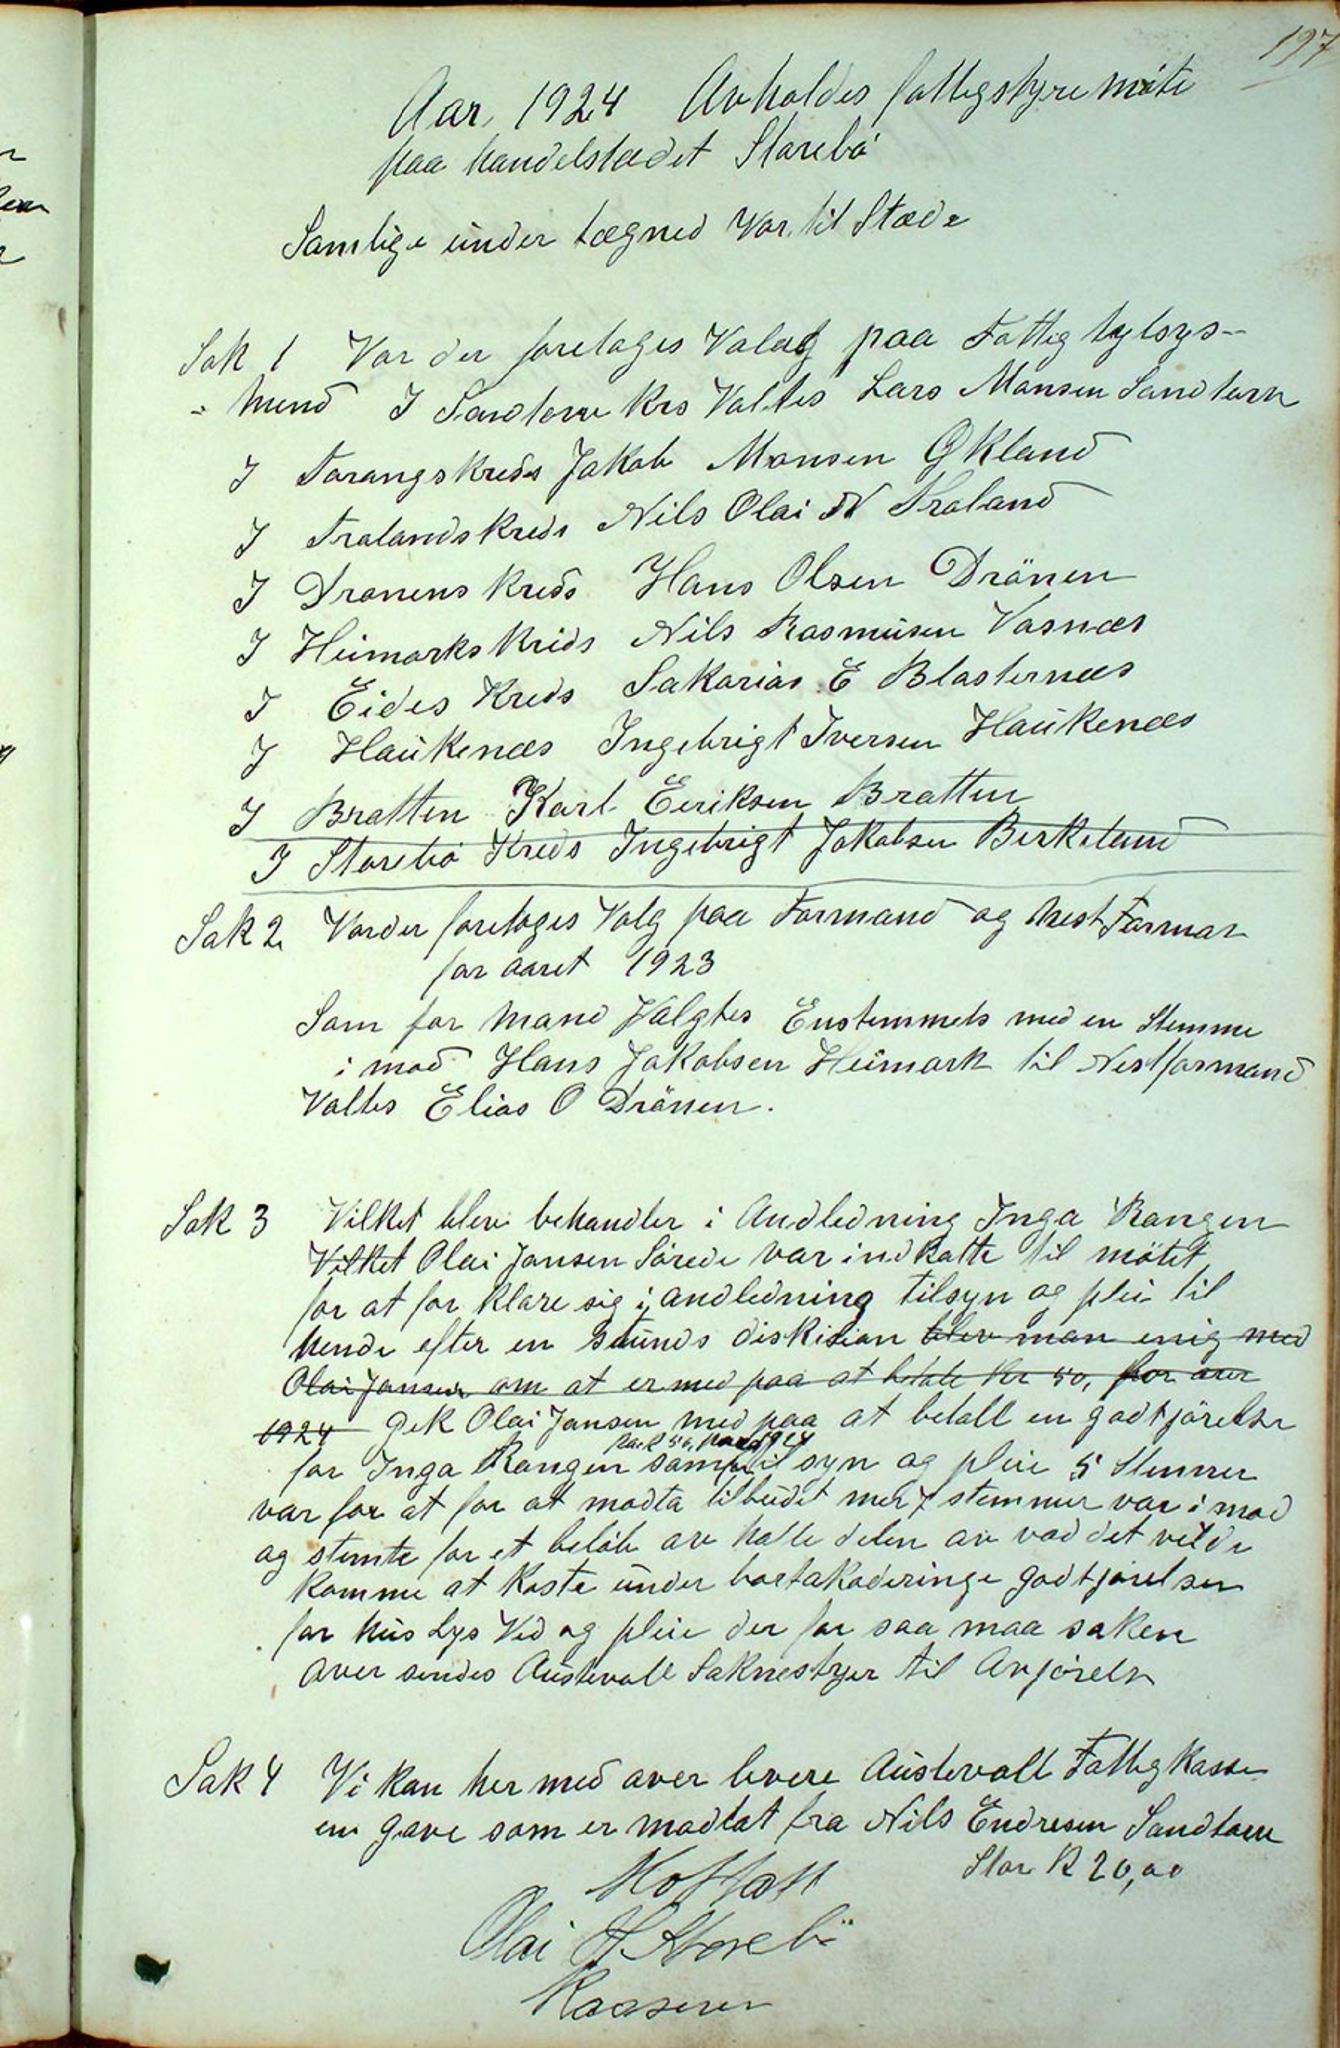 197
Aar, 1924 Avholdes fattigstyre möte
paa handelstædet Storebö
Samlige under tegned Var til Stæde
Sak 1 Var der foretages Valg paa Fattig tylsys-
- mend I Sandtorv Krs Valtes Lars Monsen Sandtorv
I Torangskreds Jakob Monsen Økland
I Trolandskreds Nils Olai N Troland
I Dronens Kreds Hans Olsen Drönen
I Heimarks Kreds Nils Rasmusen Vasnæs
I Eides Kreds Sakarias E Blasternæs
I Haukenæs Ingebrigt Iversen Haukenæs
I Bratten Karl Eeriksen Bratten
I Storebö Kreds Ingebrigt Jakobsen Birkeland
Sak 2 Var der foretoges Valg paa Formand og nest Formar
for aaret 1923
Som for mand Valgtes Enstemmets med en stemme
i mod Hans Jakobsen Heimark til Nestformand
Valtes Elias O Drönen.
Sak 3 Vilket blev behandler i Andledning Inga Rangen
Vilket Olai Jansen Sörede var indkatte til mötet
for at for klare sig i andledning tilsyn og pleie til
hende efter en stunds diskision blev man enig med
Olai Jansen om at er med paa at betale kr 50, for aret
1924 gek Olai Jansen med paa at betall en godtjörelse
for Inga Rangen som for tilsyn og pleie 5 Stemmer
var for at for at modta tilbudet mer 7 stemmer var i mod
og stemte for et belöb av halle delen av vad det vilde
komme at koste under bortakoderinge godtjörelsen
for hus Lys Ved og pleie der for saa maa saken
over sendes Austevoll Saknestyer til Avjörelse
Sak 4 Vi kan her med over levere Austevoll Fattigkasse
en gave som er modtat fra Nils Endresen Sandtorv
Stor K 20,00
Mottatt
Olai H Storebö
Kasserer